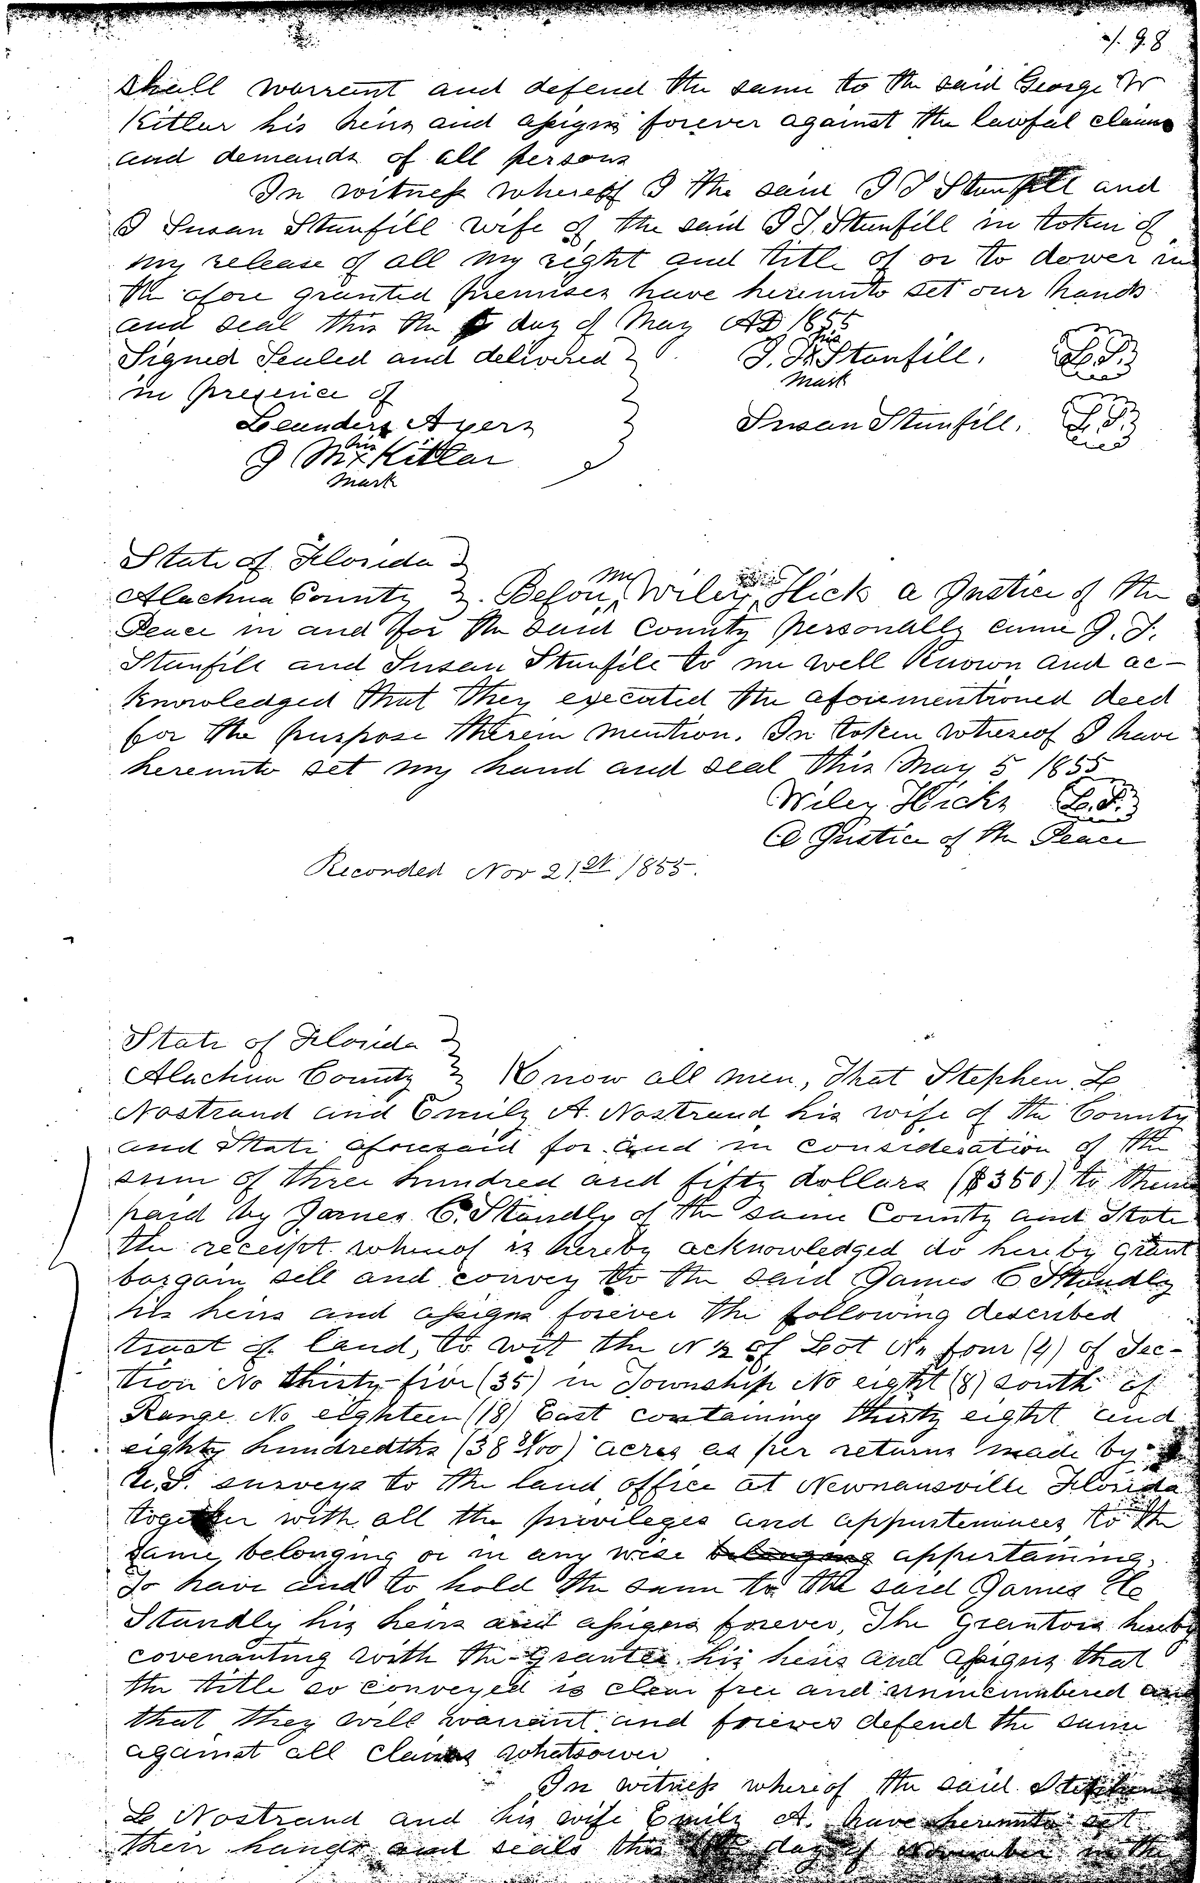 198
shall warrant and defend the same to the said George W
Kitlar his heirs and assigns forever against the lawful claims
and demands of all persons
In witness whereof I the said J J Stanfill and
I Susan Stanfill wife of the said J J. Stanfill in token of
my release of all my right and title of or to dower in
the afore granted premises have hereunto set our hands
and seal this the 5 day of May AD 1855
Signed Sealed and delivered
in presence of
J. J. his x mark Stanfill. L.S.
Leander Ayers
Susan Stanfill. L.S.
J M his x mark Kitlar
State of Florida
Alachua County . Before me Wiley Hick a Justice of the
Peace in and for the said County personally came J. J.
Stanfill and Susan Stanfill to me well known and ac-
knowledged that they executed the aforementioned deed
for the purpose therein mention. In token whereof I have
hereunto set my hand and seal this May 5 1855
Wiley Hicks L.S.
A Justice of the Peace
Recorded Nov 21st 1855.
State of Florida
Alachua County Know all men, That Stephen L
Nostrand and Emily A. Nostrand his wife of the County
and State aforesaid for and in consideration of the
sum of three hundred and fifty dollars ($350) to them
paid by James C. Standly of the same County and State
the receipt whereof is hereby acknowledged do hereby grant
bargain sell and convey to the said James C Standly
his heirs and assigns forever the following described
tract of land, to wit the N ½ of Lot No four (4) of Sec-
tion No thirty-five (35) in Township No eight (8) south of
Range No eighteen (18) East containing thirty eight and
eighty hundredths (38 80/100) acres as per returns made by
U.S. surveys to the land office at Newnansville Florida
together with all the privileges and appurtenances to the
same belonging or in any wise belonging appertaining.
To have and to hold the same to the said James C
Standly his heirs and assigns forever, The Grantors hereby
covenanting with the Grantee his heirs and assigns that
the title so conveyed is clear free and unincumbered and
that they will warrant and forever defend the same
against all claims whatsoever
In witness whereof the said Stephen
L Nostrand and his wife Emily A. have hereunto set
their hands and seals this day of November in the